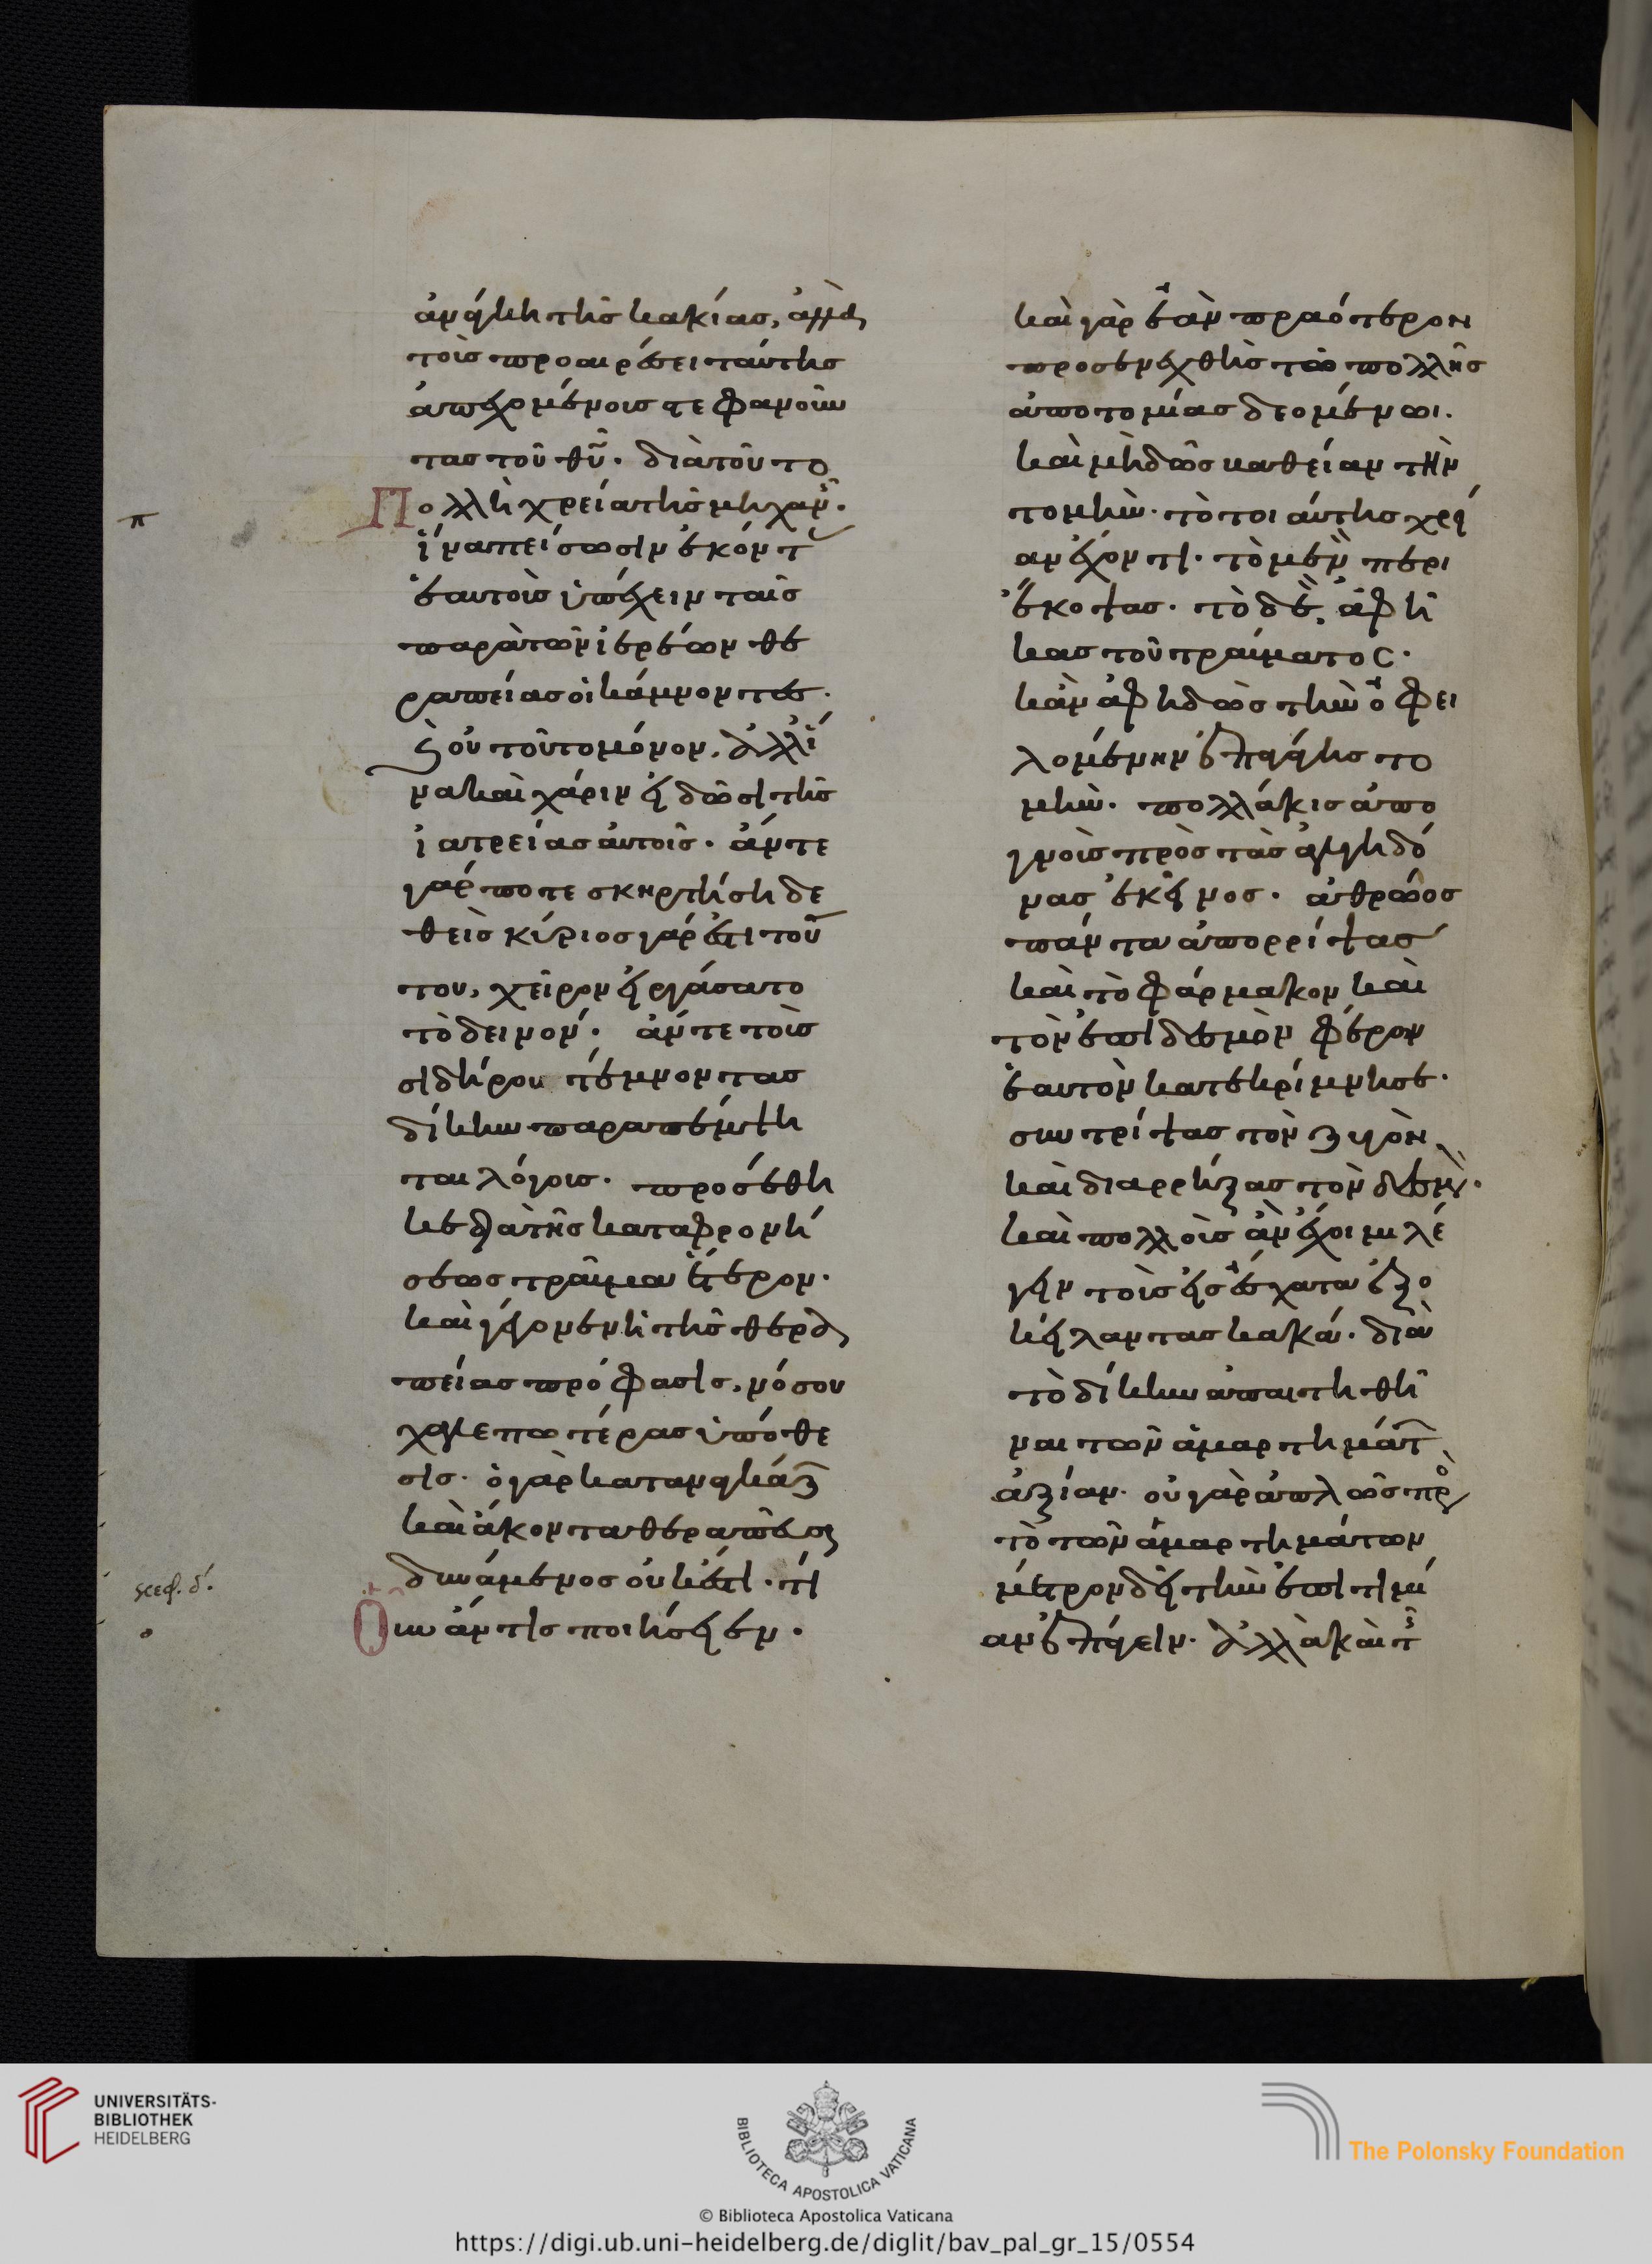 ἀνάγκη τῆς κακίας, ἀλλὰ
τοὺς προαιρέσει ταύτης
ἀπεχομένους στεφανοῦν
τος τοῦ θῡ. διὰ τοῦτο
Πολλὴ χρεία τῆς μηχαν.
ἵνα πείσωσιν ἑκόντ
ἑαυτοὺς ὑπέχειν ταῖς
παρὰ τῶν ἱερέων θε
ραπείας οἱ κάμνοντες.
ϗ οὐ τοῦτο μόνον, ἀλλ' ἵ
να καὶ χάριν εἰδῶσι τῆς
ἰατρείας αὐτοῖς. ἄν τε
γάρ ποτε σκηρτήση δε
θεὶς κύριος γάρ ἐστι τού
του, χεῖρον εἰργάσατο
τὸ δεινόν. ἄν τε τοὺς
σιδήρου τέμνοντας
δίκην παραπέμψη
ται λόγους. προσέθη
κε διὰ τῆς καταφρονή
σεως τραῦμα ἕτερον.
καὶ γέγονεν ἡ τῆς θερα
πείας πρόφασις, νόσου
χαλεπωτέρας ὑπόθε
σις. ὁ γὰρ καταναγκάζ
καὶ ἄκοντα θεραπεῦσαι
δυνάμενος οὐκ ἔστι. τί
Οὖν ἄν τις ποιήσειεν.
π
κεφ. δ'.
καὶ γὰρ ἐὰν πραότερον
προσενεχθῆς τῶ πολλῆς
ἀποτομίας δεομένωι.
καὶ μὴ δῶς βαθεῖαν τὴν
τομὴν. τῶ τοιαύτης χρεί
αν ἔχοντι. τὸ μὲν περι
έκοψας. τὸ δὲ, ἀφῆ
κας τοῦ τραύματος.
κἂν ἀφηδῶς τὴν ὀφει
λομένην ἐπαγάγης το
μὴν. πολλάκις ἀπο
γνοὺς πρὸς τὰς ἀλγηδό
νας ἐκεῖνος. ἀθρόως
πάντα ἀπορρίψας
καὶ τὸ φάρμακον καὶ
τὸν ἐπίδεσμὸν φέρων
ἑαυτὸν κατεκρίμνησε.
συντρίψας τὸν ζυγὸν,
καὶ διαρρήξας τὸν δεσμὸ.
καὶ πολλοὺς ἂν ἔχοιμι λέ
γειν τοὺς εἰς ἔσχατα ἐξο
κείλαντας κακά. διὰ
τὸ δίκην ἀπαιτηθῆ
ναι τῶν ἁμαρτημάτ
ἀξίαν. οὐ γὰρ ἁπλῶς πρὸ
τὸ τῶν ἁμαρτημάτων
μέτρον δεῖ τὴν ἐπιτιμί
αν ἐπάγειν. ἀλλὰ καὶ τ